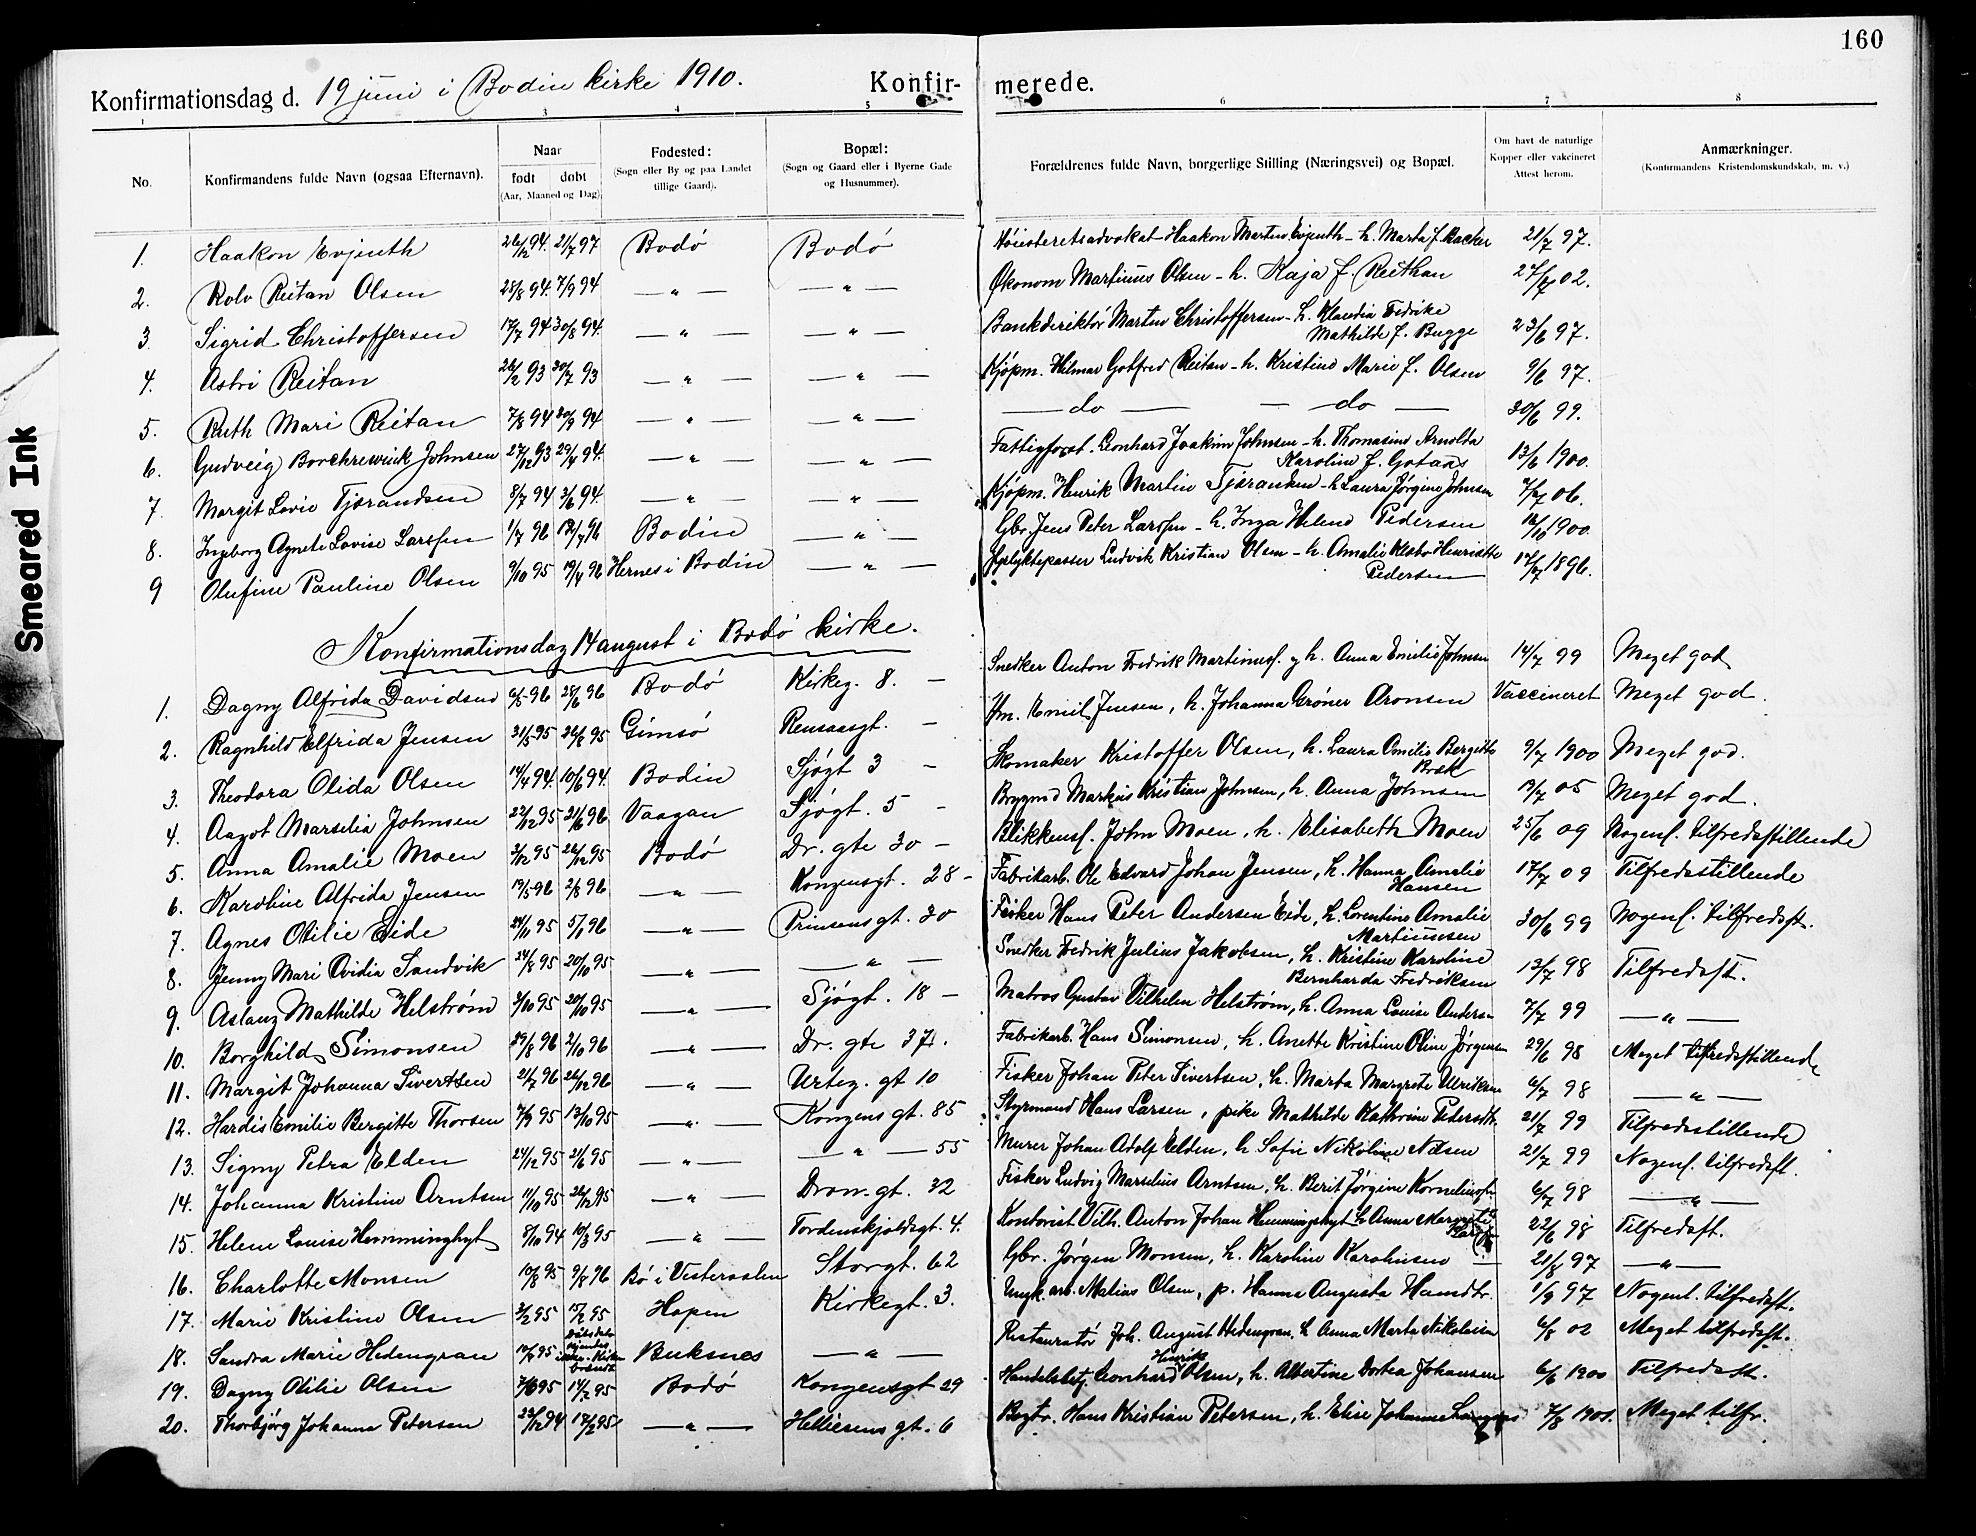 160
Konfirmationsdag d. 19 juni i Bodin kirke 1910. Konfir- merede.
1 3 4 5 6 7 8
No. Konfirmandens fulde Navn (ogsaa Efternavn). Naar født døbt (Aar, Maaned og Dag) Fødested: (Sogn eller By og paa Landet tillige Gaard). Bopæl: (Sogn og Gaard eller i Byerne Gade og Husnummer). Forældrenes fulde Navn, borgerlige Stilling (Næringsvei) og Bopæl. Om havt de naturlige Kopper eller vakcineret Attest herom. Anmærkninger. (Konfirmandens Kristendomskundskab, m. v.)
1. Haakon Evjenth 26/12 94. 21/7 97 Bodø Bodø Høiesteretsadvokat Haakon Martin Evjenth - h. Marta f. Backer 21/7 97.
2. Rolv Reitan Olsen 28/8 94. 7/9 94 — " — — " — Økonom Martinus Olsen - h. Kaja f. Reithan 27/7 02.
3. Sigrid Christoffersen 17/7 94 30/8 94. — " — — " — Bankdirektør Martin Christoffersen - h. Klaudia Fedrike Mathilde f. Bugge 23/6 97.
4. Astri Reitan 26/2 93 30/7 93 — " — — " — Kjøpm. Hilmar Gotfred Reitan - h. Kristine Marie f. Olsen 9/6 97.
5. Ruth Mari Reitan 7/8 94 30/9 94 — " — — " — — do — — do — 30/6 99.
6. Gudveig Borchrewink Johnsen 27/12 93 29/4 94. — " — — " — Fattigforst. Leonhard Joakim Johnsen - h. Thomasine Arnolda Karoline f. Gotaas 13/6 1900.
7. Margit Lovie Tjærandsen 8/7 94 3/6 94. — " — — " — Kjøpm. Henrik Martin Tjærandsen - h. Laura Jørgine Johnsen 7/7 06.
8. Ingeborg Agnete Lovise Larssen 1/7 96 12/7 96 Bodin — " — Gbr. Jens Peter Larssen - h. Inga Helene Pedersen 16/10 1900.
9 Olufine Pauline Olsen 9/10 95 19/4 96 Hernes i Bodin — " — Fyrlyktepasser Ludvik Kristian Olsen - h. Amalie Henriette Pedersen 14/7 1896.
Konfirmationsdag 14 august i Bodø kirke.
1. Dagny Alfrida Davidsen 6/5 96 28/6 96 Bodø Kirkeg. 8. — Snedker Anton Fredrik Martinus. og h. Anna Emilie Johnsen 14/7 99 Meget god
2. Ragnhild Elfrida Jensen 31/5 95 26/8 95 Gimsø Rensaasgt. — Hm. Emil Jensen, h. Johanna Grøner Aronsen Vaccineret Meget god.
3. Theodora Olida Olsen 14/4 94. 10/6 94. Bodin Sjøgt 3 — Skomaker Kristoffer Olsen, h. Laura Emilie Bergitte Bræk 9/7 1900 Meget god.
4. Aagot Marselie Johnsen 22/12 95 21/6 96 Vaagan Sjøgt. 5 — Brygmd Markus Kristian Johnsen, h. Anna Johnsen 19/7 05 Meget god.
5. Anna Amalie Moen 3/12 95 26/12 95 Bodø Dr. gte 30 — Blikkensl. John Moen, h. Elisabeth Moen 25/6 09 Nogenl. tilfredsstillende
6. Karoline Alfrida Jensen 19/5 96 2/8 96 — " — Kongensgt. 28 - Fabrikarb. Ole Edvard Johan Jensen, h. Hanna Amalie Hansen 17/7 09 Tilfredsstillende
7. Agnes Otilie Eide 24/11 95 5/1 96 — " — Prinsens gt. 30 Fisker Hans Peter Andersen Eide, h. Lorentine Amalie Martinussen 30/6 99 Nogenl. tilfredsst.
8. Jenny Mari Ovidia Sandvik 24/8 95 20/10 95 — " — — " — Snedker Fredrik Julius Jakobsen, h. Kristine Karoline Bernharda Fredriksen 13/7 98 Tilfredsst.
9. Aslaug Mathilde Helstrøm 3/10 95 20/10 95 — " — Sjøgt. 18 — Matros Gustav Vilhelm Helstrøm, h. Anna Louise Anders. 7/7 99 — " —
10. Borghild Simonsen 29/8 96 2/10 96 — " — Dr. gte 37. Fabrikarb. Hans Simonsen, h. Anette Kristine Oline Jørgensen 29/6 98 Meget tilfredsstillend
11. Margit Johanna Sivertsen 21/7 96 26/12 96 — " — Urteg. gt 10 Fisker Johan Peter Sivertsen, h. Marta Margrete Ulriksen 6/7 98 — " —
12. Hardis Emilie Bergitte Thorsen 7/9 95 13/10 95 — " — Kongens gt. 85 Styrmand Hans Larsen, pike Mathilde Kathrine Pedersdtr. 21/7 99 Tilfredsstillende
13. Signy Petra Elden 24/12 95 2/6 95 — " — — " — 55 Murer Johan Adolf Elden, h Sofie Nikoline Nilsen 21/7 99 Nogenl. tilfredsst.
14. Johanna Kristine Arntsen 11/10 95 26/12 95 — " — Dron. gt. 32 Fisker Ludvig Marselius Arntsen, h. Berit Jørgine Korneliusdtr. 6/7 98 — " —
15. Helene Louise Hemminghyt 8/10 94 10/3 95 — " — Tordenskjoldsgt. 4. Kontorist Vilh. Anton Johan Hemminghyt h. Anna Margrete 22/6 98 Tilfredsst.
16. Charlotte Monsen 10/8 95 9/8 96 Bø i Vesteraalen Storgt. 62 Gbr. Jørgen Monsen, h. Karoline Karolinsen — 21/8 97 — " —
17. Marie Kristine Olsen 3/2 95 15/2 95 Hopen Kirkegt. 3. Matias Olsen, p. Hanna Augusta Hansdtr. 1/9 97 Nogenl. tilfredsst.
18. Sandra Marie Hedengran 10/8 95 Buksnes — " — Restauratør Joh. August Hedengran, h Anna Marta Nikolaisen 6/8 02 Meget tilfredsst.
19. Dagny Otilie Olsen 7/6 95 14/2 95 Bodø Kongensgt 29 Handelsbetj. Leonhard Henrik Olsen, h. Albertine Dortea Johansen 6/6 1900 Tilfredsst.
20. Thorbjørg Johanna Petersen 23/12 94 17/2 95 — " — Hellesens gt. 6 Bogtr. Hans Kristian Petersen, h. Elise Johanne 7/8 1901. Meget tilfr.
Smeared Ink